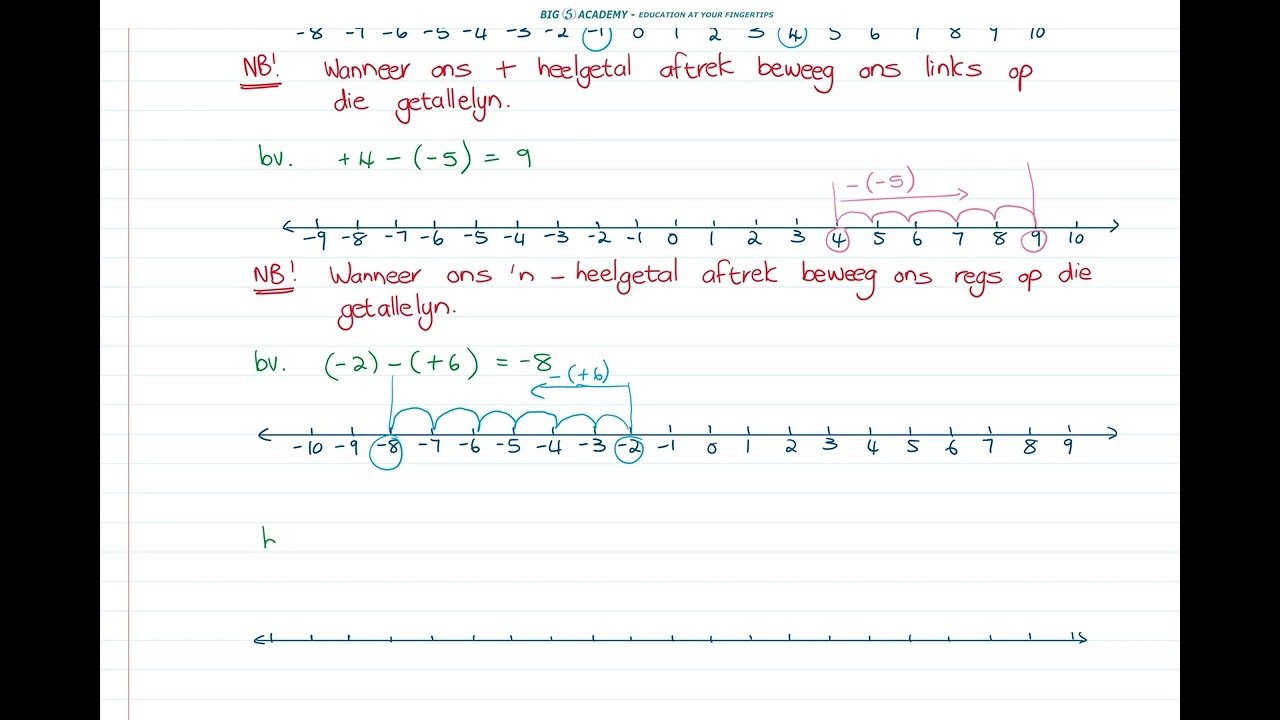 BIG 5 ACADEMY - EDUCATION AT YOUR FINGERTIPS
-8 -7 -6 -5 -4 -3 -2 -1 0 1 2 3 4 5 6 7 8 9 10
NB! Wanneer ons + heelgetal aftrek beweeg ons links op
die getallelyn.
bv. +4 - (-5) = 9
-(-5)
-9 -8 -7 -6 -5 -4 -3 -2 -1 0 1 2 3 4 5 6 7 8 9 10
NB! Wanneer ons 'n - heelgetal aftrek beweeg ons regs op die
getallelyn.
bv. (-2) - (+6) = -8
-(+6)
-10 -9 -8 -7 -6 -5 -4 -3 -2 -1 0 1 2 3 4 5 6 7 8 9